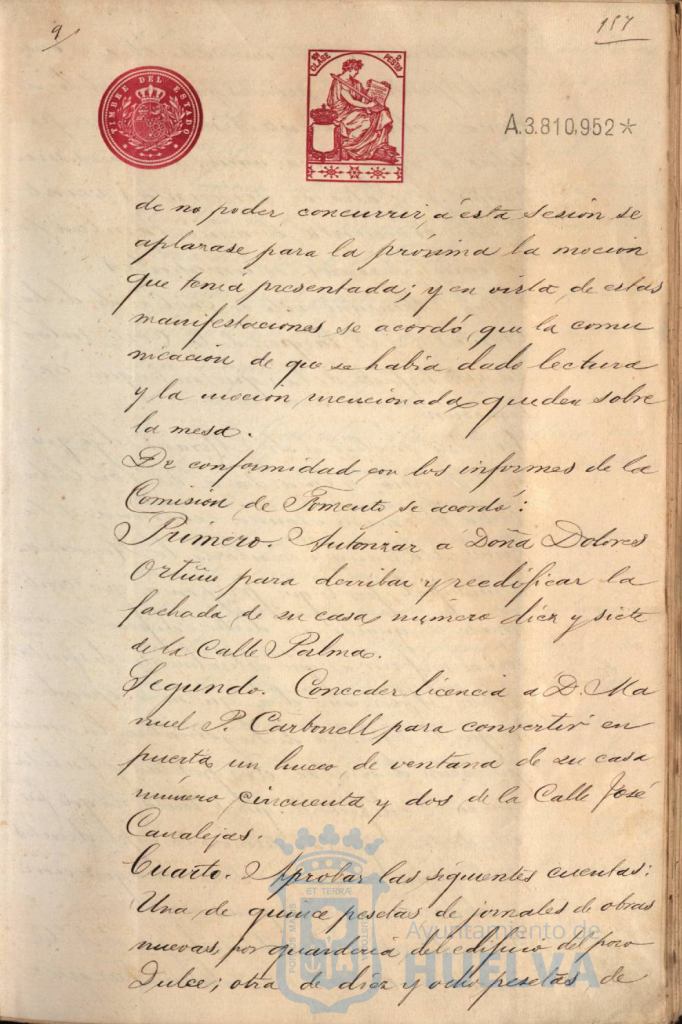 9/
157
TIMBRE DEL ESTADO
CLASE
PESETAS
A.3.810,952*
de no poder concurrir, á ésta sesión se
aplazase para la próxima la moción
que tenia presentada; y en vista, de estas
manifestaciones se acordó que la comu
nicación de que se habia dado lectura
y la moción mencionada queden sobre
la mesa.
De conformidad con los informes de la
Comisión de Fomento se acordó:
Primero. Autorizar á Doña Dolores
Ortiño para derribar y reedificar la
fachada de su casa número diez y siete
de la Calle Palma.
Segundo. Conceder licencia á D. Ma
nuel P. Carbonell para convertir en
puerta un hueco de ventana de su casa
número cincuenta y dos de la Calle José
Canalejas.
Cuarto. Aprobar las siguientes cuentas:
Una de quince pesetas de jornales de obras
nuevas, por guarderia del edificio del pozo
Dulce; otra de diez y ocho pesetas de
ET TERRÆ
Ayuntamiento de
HUELVA